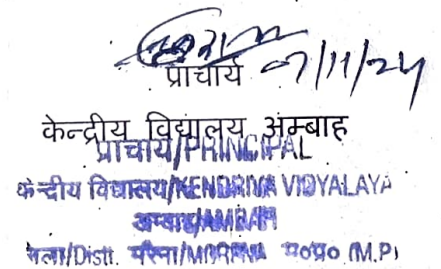 प्राचार्य 07/11/24
केन्द्रीय विद्यालय अम्बाह
प्राचार्य/PRINCIPAL
केन्द्रीय विद्यालय/KENDRIYA VIDYALAYA
अम्बाह/AMBAH
जिला/Distt. मुरैना/MORENA म०प्र० (M.P)